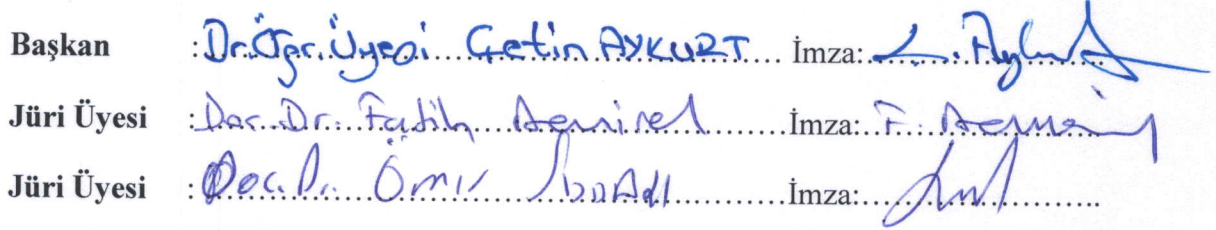 Başkan : Dr. Öğr. Üyesi Çetin AYKURT İmza: Ç. Aykurt
Jüri Üyesi : Doc. Dr. Fatih Demirel İmza: F. Demirel
Jüri Üyesi : Doc. Dr. İmza: